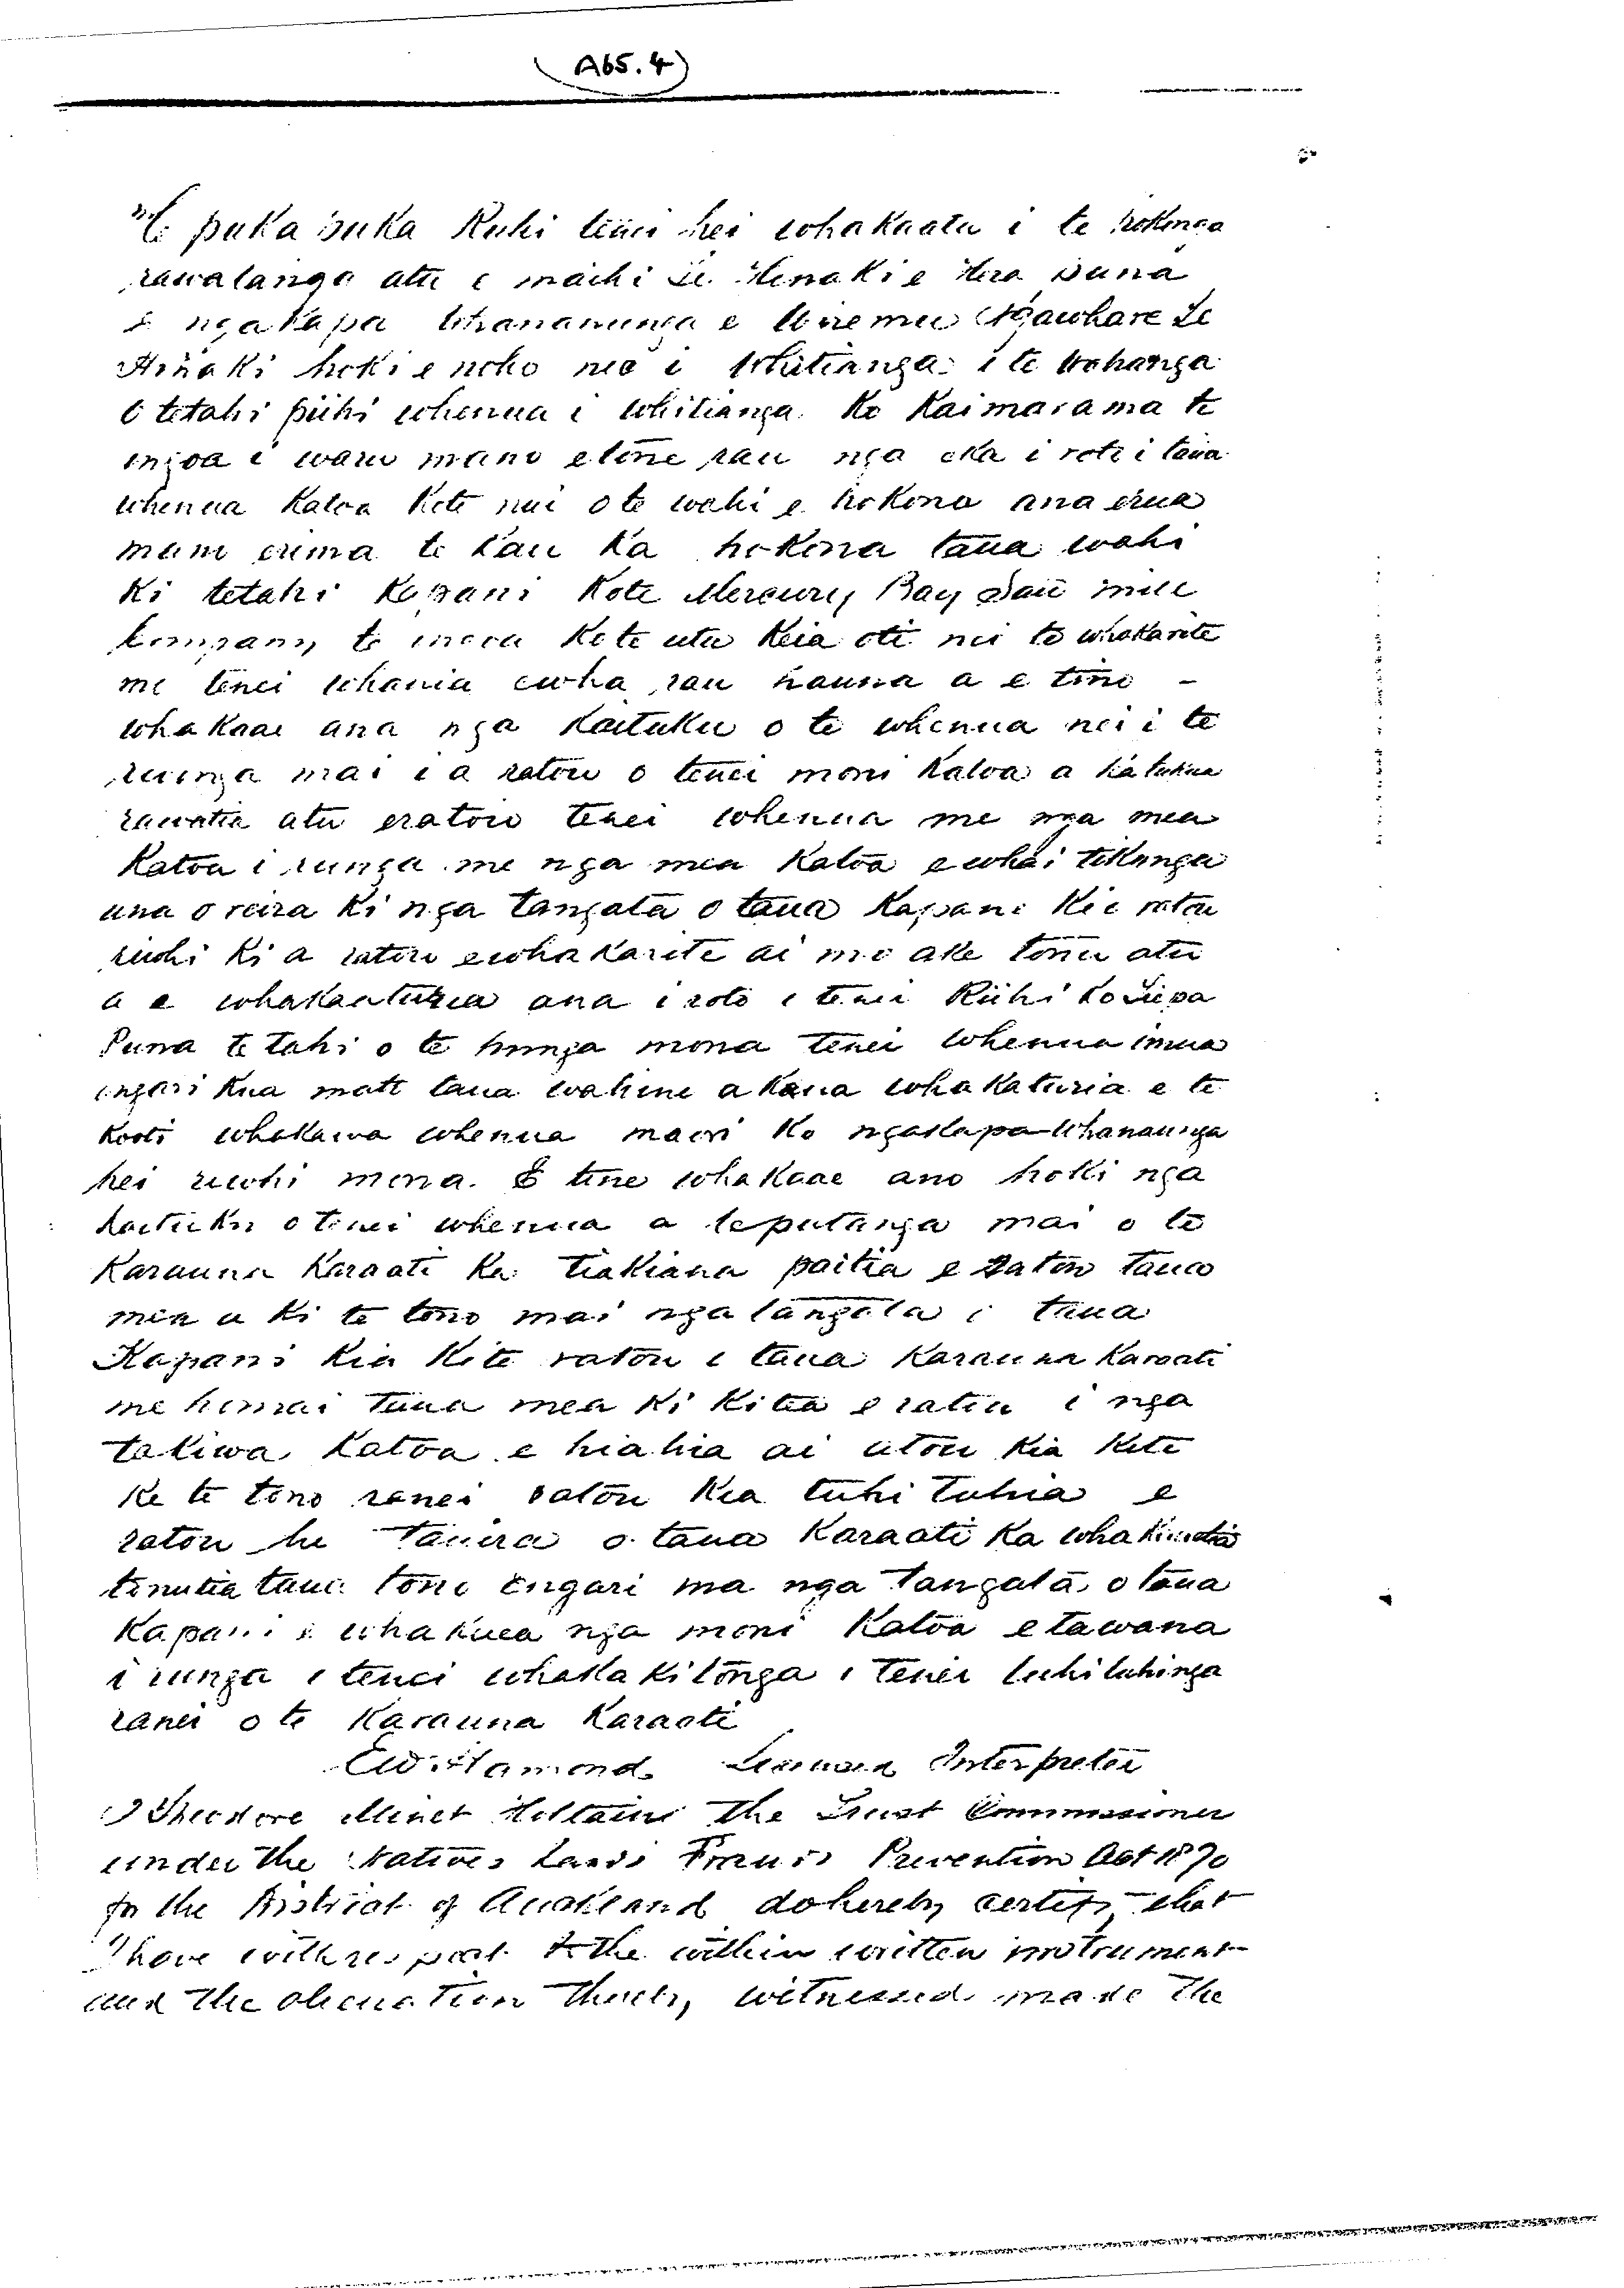 A65.4
"E pukapuka Ruhi tenei hei whakaatu i te hokonga
rawatanga atu e maihi Te Hinaki e Hera Puna
e ngakapa Whanaunga e Wiremu Ngawhare Te
Hinaki hoki e noho nei i Whitianga i te wahanga
o tetahi piihi whenua i Whitianga Ko Kaimarama te
ingoa e waru mano etorie rau nga eka i roto i taua
whenua Katoa Kote nui o te wahi e hokona ana erua
mano erima te Kau Ka hokona taua wahi
Ki tetahi Kapani Kote Mercury Bay Saw mill
Company te ingoa Kote utu Keia oti nei te whakarite
me tenei Wharua ewha rau pauna a e tino -
whakaae ana nga Kaituku o te whenua nei i te
riringa mai i a ratou o tenei moni Katoa a Ka tukua
rawatia atu eratou tenei whenua me nga mea
Katoa i runga me nga mea Katoa e whai tikanga
ana o reira Ki nga tangata o taua Kapani Ki e ratou
riiwhi Ki a ratou e whakarite ai mo ake tonu atu
a e whakaaturia ana i roto i tenei Riihi Ko Liepa
Puna te tahi o te hunga mona tenei whenua imua
engari Kua mate taua wahine a Kaua whakaturia e te
Kooti whakawa whenua maori Ko ngakapa Whanaunga
hei riwhi mona. E tino whakaae ano hoki nga
Kaituku o tenei whenua a teputanga mai o te
Karauna Karaati Ka tiakiana paitia e ratou taua
mea a Ki te tono mai nga tangata i taua
Kapani Kia Kite ratou i taua Karauna Karaati
me homai taua mea Ki Kitea e ratou i nga
takiwa Katoa e hiahia ai atou Kia Kite
Ke te tono ranei ratou Kia tuhi tuhia e
ratou he tauira o taua Karaati Ka whakamatia
tinutia taua tono engari ma nga tangata o taua
Kapani e whakaea nga moni Katoa e tawana
i runga i tenei whakakitonga i tenei tuhituhinga
ranei o te Karauna Karaati
E W Hamond Licensed Interpreter
I Theodore Minet Haltain the Trust Commissioner
under the Natives Lands Frauds Prevention Act 1870
for the District of Auckland do hereby certify that
I have with respect to the within written instrument
and the alienation thereby witnessed made the